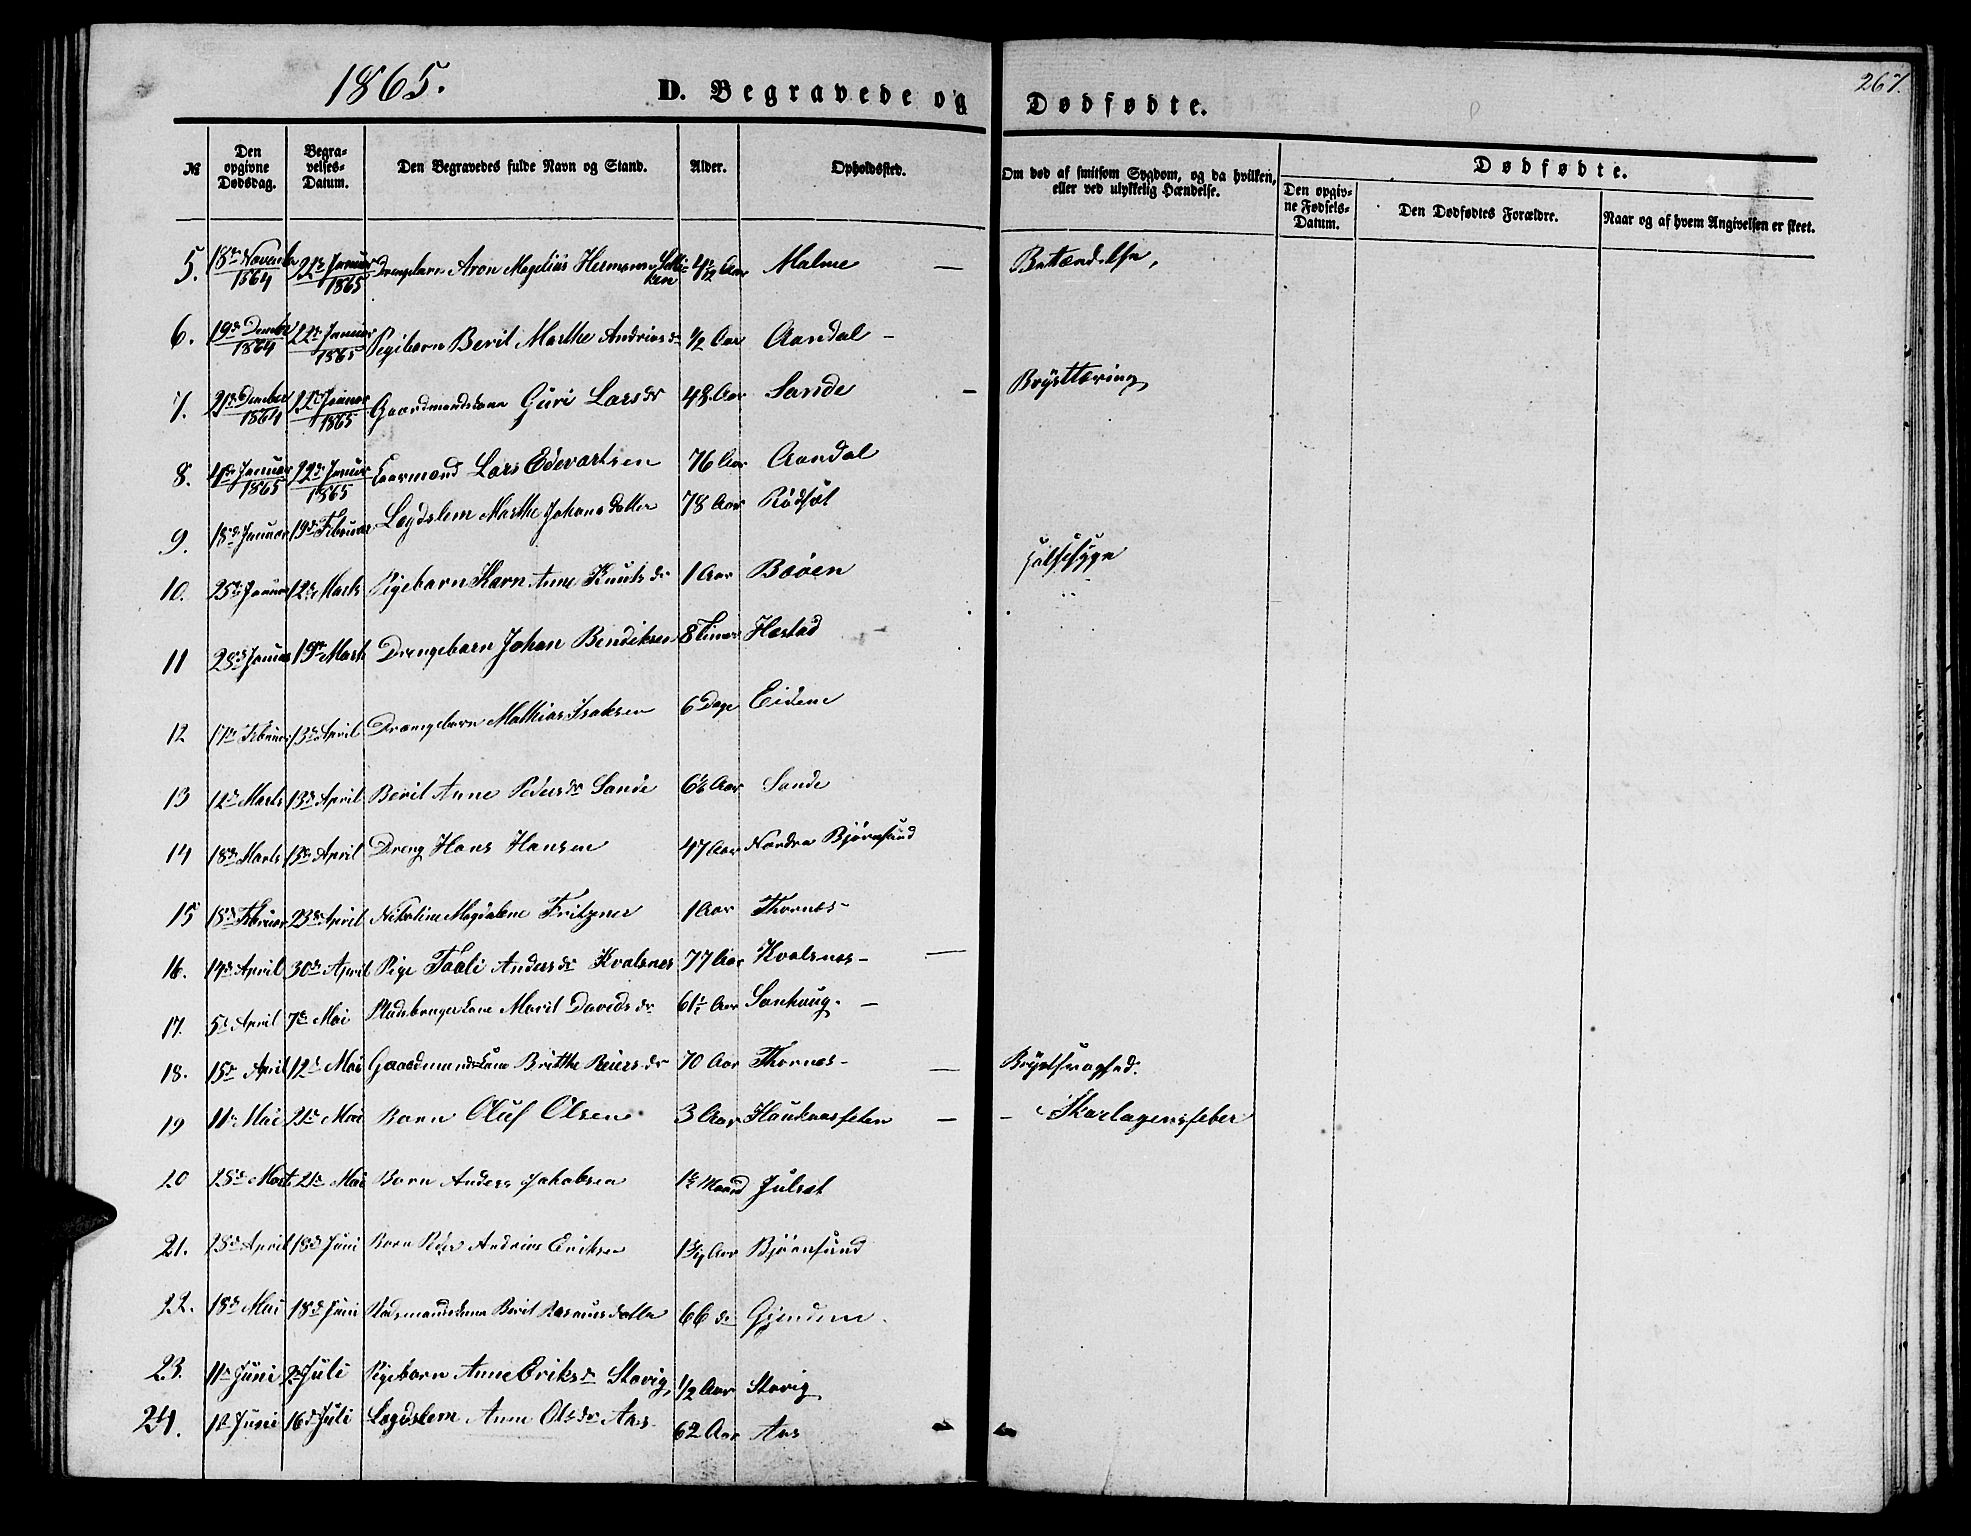 1865.
D. Begravede og Dødfødte.
267.
№ Den opgivne Dødsdag. Begravelses-Datum. Den Begravedes fulde Navn og Stand. Alder. Opholdssted. Om død af smitsom Sygdom, og da hvilken, eller ved ulykkelig Hændelse. Dødfødte.
Den opgivne Fødsels-Datum. Den Dødfødtes Forældre. Naar og af hvem Angivelsen er skeet.
5. 18de November 1864 22de Januar 1865 Drengebarn Aron Magelius Hermansen Malme — Betændelse,
6. 19de December 1864 22de Januar 1865 Pigebarn Berit Marthe Andriasdr 1/2 Aar Aandal —
7. 21de December 1864 22de Januar 1865 Gaardmandskone Guri Larsdr 48 Aar Sande — Brysttæring
8. 4de Januar 1865 22de Januar 1865 Kaarmand Lars Edevartsen 76 Aar Aandal
9. 18de Januar 19de Februar Lægdslem Marthe Johansdatter 78 Aar Rødsæt
10. 25de Januar 12te Marts Pigebarn Karn Anne Knutsdr 1 Aar Bøen Halssyge
11 28de Januar 19de Marts Drengebarn Johan Bendiksen 8 Timer Hæstad
12 17de Februar 13de April Drængebarn Mathias Isaksen 6 Dage Eidem
13 12te Marts 13de April Berit Anne Pedersdr Sande Aar Sande
14 18de Marts 13de April Dreng Hans Hansen 47 Aar Nordre Bjørnsund
15 18de Februar 23de April Nikoline Magdalene Fritzner 1 Aar Thornes —
16. 14de April 30de April Pige Taali Andersdr Kvalsnes 77 Aar Kvalsnes — —
17. 5te April 7de Mai Pladsbrugerkone Marit Davidsdr Aar Sanhaug. —
18. 15de April 12te Mai Gaardmandskone Britthe Reiersdr 70 Aar Thornes — — Brystsvaghed.
19 11te Mai 21de Mai Barn Oluf Olsen 3 Aar Haukaassæten — — Skarlagensfeber
20 25de Marts 21de Mai Barn Anders Jakobsen Maaned Julsæt
21. 28de April 18de Juni Barn Peder Andrias Eriksen Aar Bjørnsund
22. 18de Mai 18de Juni Pladsmandskone Berit Rasmusdatter 66 do Gjendem.
23. 11te Juni 2den Juli Pigebarn Anne Eriksdr Stavig, 1/2 Aar Stavig
24. 1ste Juni 16de Juli Lægdslem Anne Olsdr Aas 62 Aar Aas